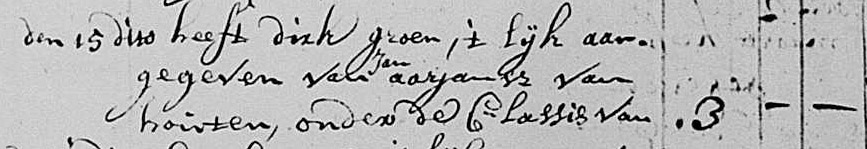 den 15 dito heeft dirk groen, 't lijk aan-
gegeven van Jan aarjansz van
houten, onder de Classis van . 3 — —